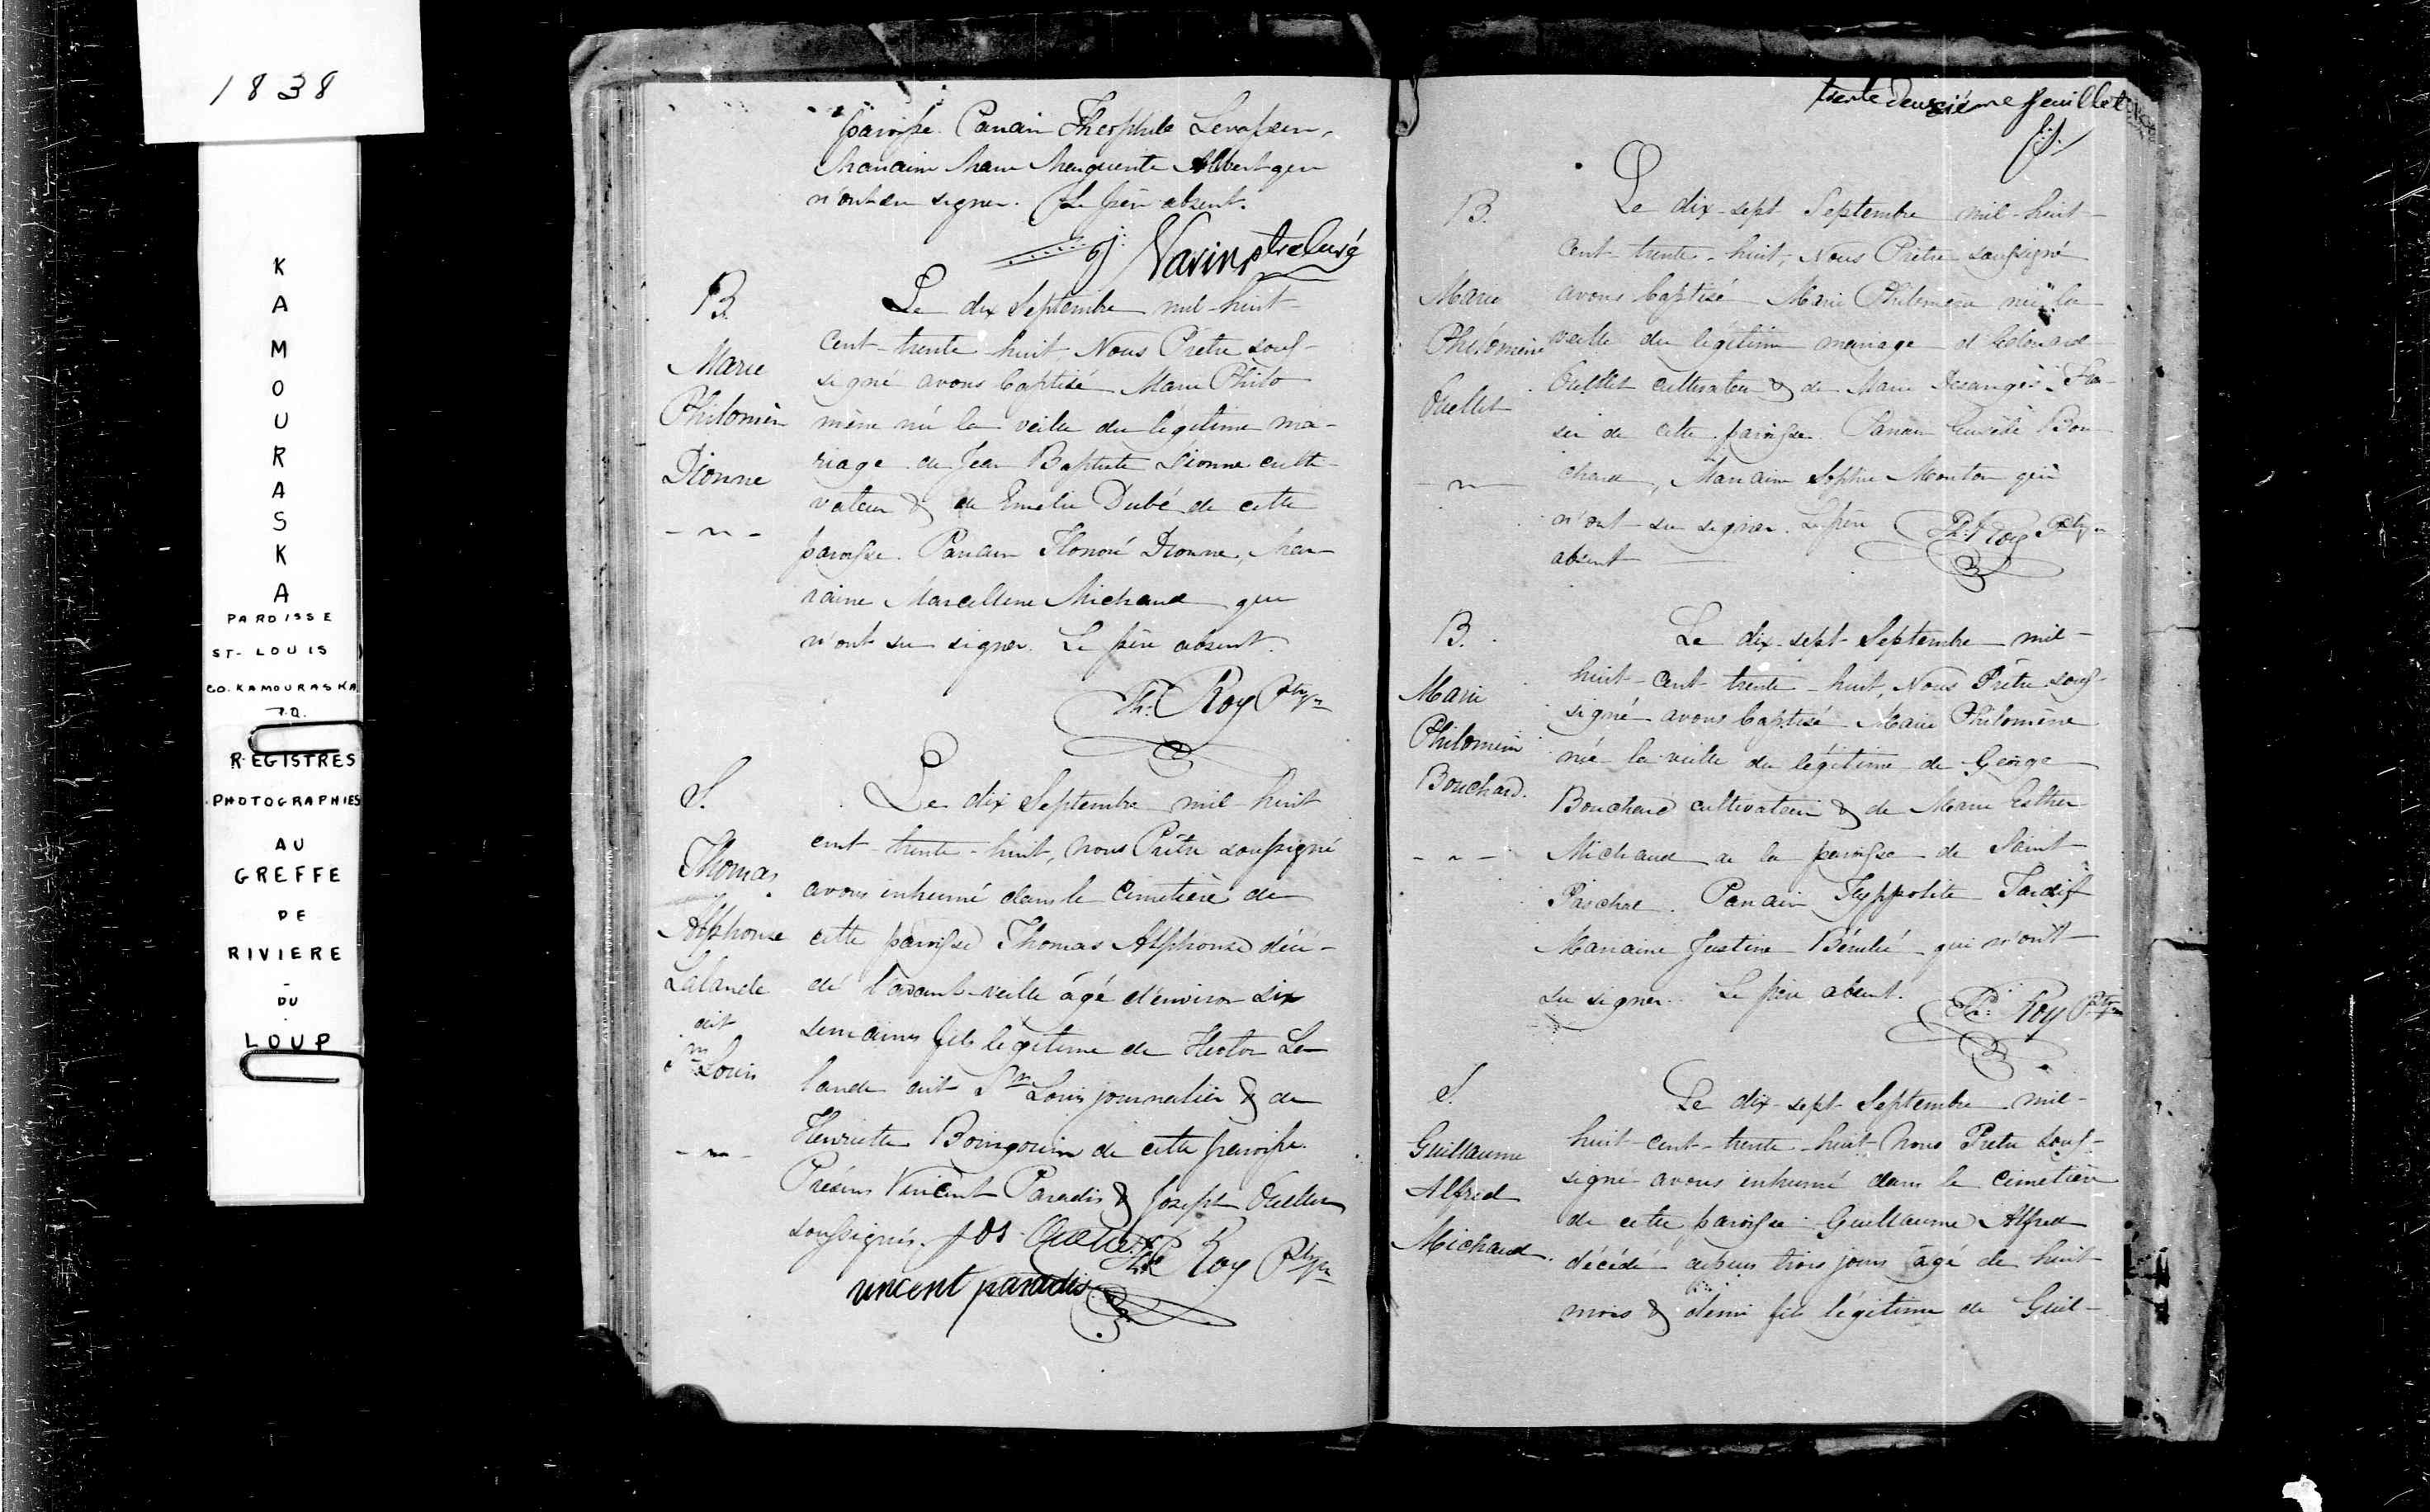 1838
KAMOURASKA
PAROISSE
ST-LOUIS
CO. KAMOURASKA
P.Q.
REGISTRES
PHOTOGRAPHIES
AU
GREFFE
DE
RIVIERE
-
DU
LOUP
paroisse. Parain Theophile Levasseur,
Maraine Marie Marguerite Albert qui
n'ont su signer. Le père absent.
J Varin ptre Curé
B.
Marie
Philomèn
Dionne
Le dix Septembre mil-huit-
cent-trente-huit, Nous Prêtre sous-
signé avons baptisé Marie Philo
mène née la veille du légitime ma-
riage de Jean Baptiste Dionne culti-
vateur & de Emelie Dubé de cette
paroisse. Parain Honoré Dionne, Mar-
raine Marcelline Michaud qui
n'ont su signer. Le père absent.
Th. Roy Ptre
S.
Thomas
Alphonse
Lalande
dit
St Louis
Le dix Septembre mil-huit
cent-trente-huit, nous Prêtre soussigné
avons inhumé dans le Cimetière de
cette paroisse Thomas Alphonse décé-
dé l'avant-veille âgé d'environ six
semaines fils légitime de Hector La-
lande dit St Louis journalier & de
Henriette Boingouin de cette paroisse.
Présens Vincent Paradis & Joseph Ouellet
soussignés. Jos Ouellet Th. Roy Ptre
vincent paradis
trente deuxième feuillet
B.
Marie
Philomène
Ouellet
Le dix-sept Septembre mil-huit-
cent-trente-huit, Nous Prêtre soussigné
avons baptisé Marie Philomène née la
veille du légitime mariage d'Edouard
Ouellet cultivateur & de Marie Desanges
de cette paroisse. Parain Eusèbe Bou-
chard, Maraine Sophie Monton qui
n'ont su signer. Le père Th. Roy Ptre
absent
B.
Marie
Philomène
Bouchard.
Le dix-sept Septembre mil-
huit-cent-trente-huit, Nous Prêtre sous-
signé avons baptisé Marie Philomène
née la veille du légitime de George
Bouchard cultivateur & de Marie Esther
Michaud de la paroisse de Saint
Paschal. Parain Hyppolite Tardif
Maraine Justine Bérubé qui n'ont
su signer. Le père absent. Th. Roy Ptre
S.
Guillaume
Alfred
Michaud.
Le dix-sept Septembre mil-
huit-cent-trente-huit, Nous Prêtre sous-
signé avons inhumé dans le cimetière
de cette paroisse Guillaume Alfred
décédé depuis trois jours âgé de huit
mois & demi fils légitime de Guil-